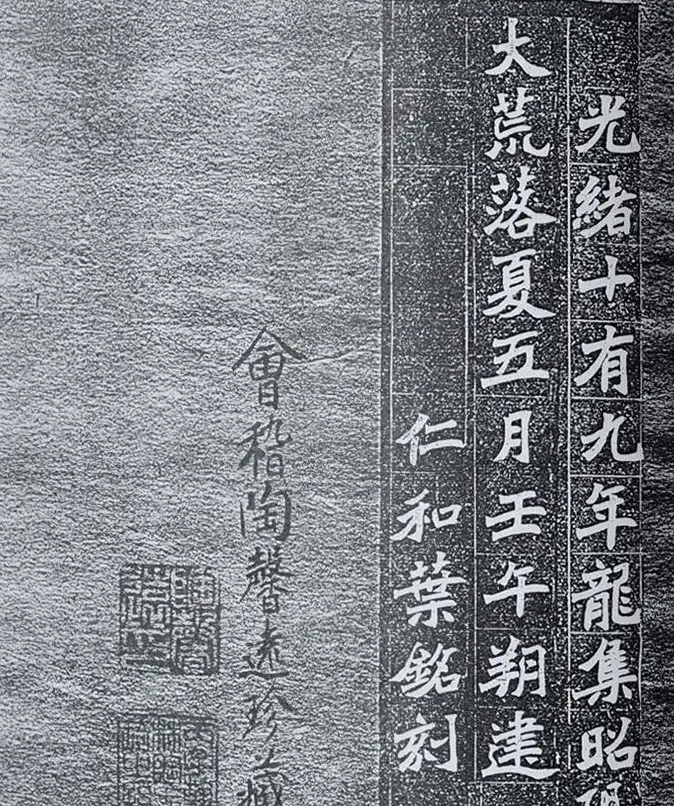 光緒十有九年龍集昭
大荒落夏五月壬午朔建
仁和葉銘刻
會稽陶馨遠珍藏